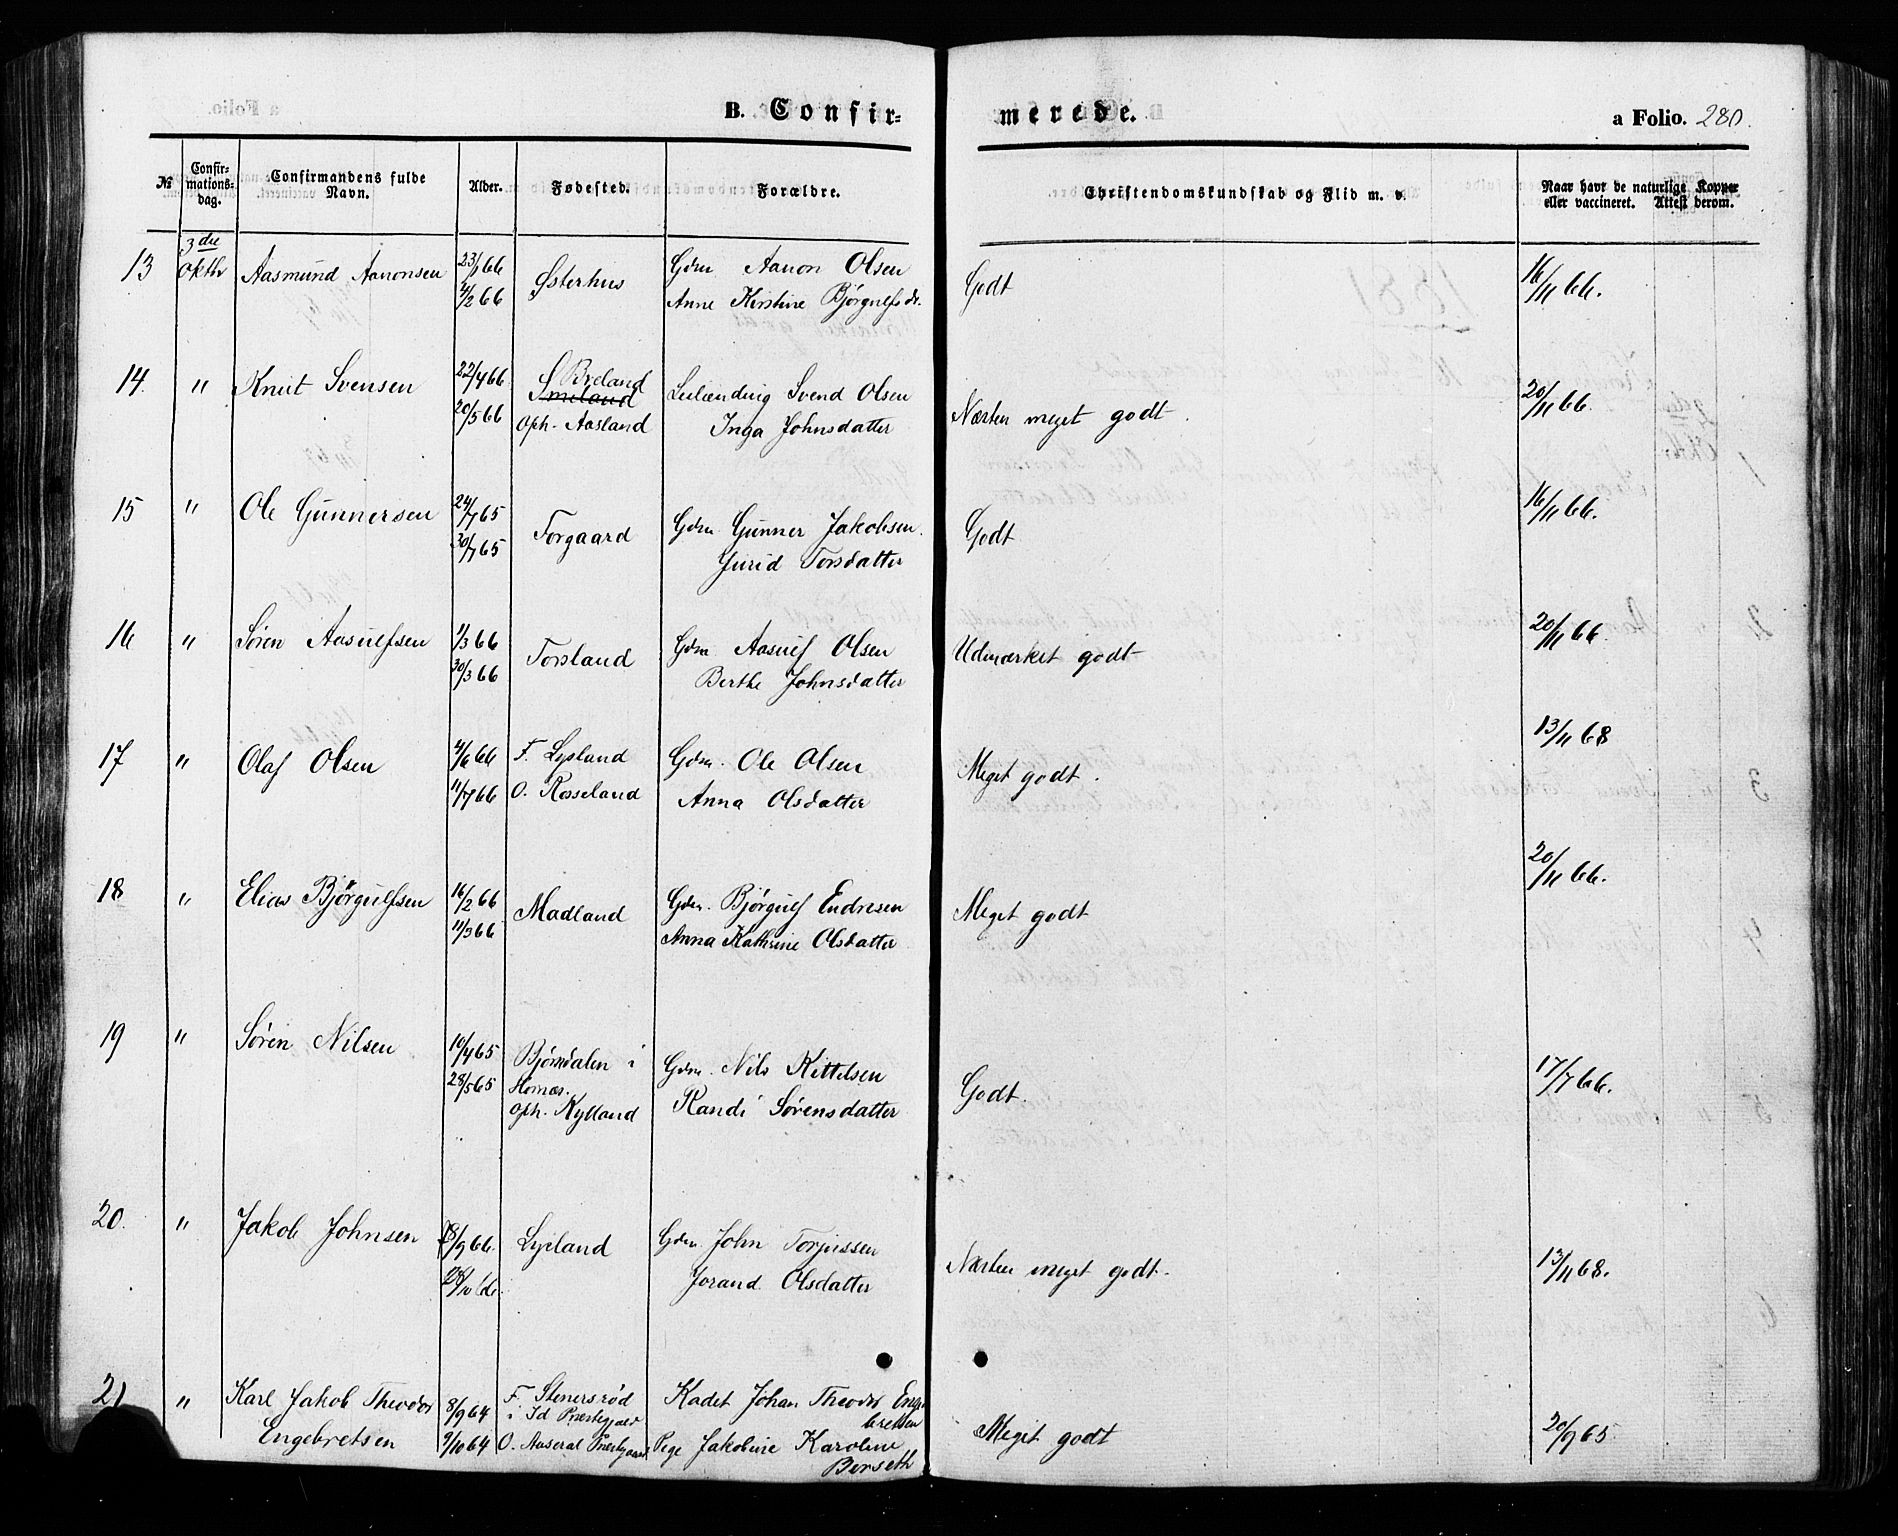 B. Confir-
merede.
a Folio. 280.
№ Confir-mations-dag. Confirmandens fulde Navn. Alder. Fødested. Forældre. Christendomskundskab og Flid m. v. Naar havt de naturlige Kopper eller vaccineret. Attest derom.
3die
13 Oktbr Aasmund Aanonsen 23/1 66 Østerhus Gdm Aanon Olsen Godt 16/11 66.
4/2 66 Anne Kirstine Bjørgulfsdt.
14. " Knut Svensen 22/4 66 S Breland Leilænding Svend Olsen Næsten meget godt. 20/11 66.
20/5 66 Oph. Aasland Inga Johnsdatter
15 " Ole Gunnersen 24/7 65 Torgaard Gdm Gunner Jakobsen. Godt 16/11 66.
30/7 65 Jurid Torsdatter
16 " Søren Aasulfsen 1/3 66 Torsland Gdm Aasulf Olsen Udmærket godt 20/11 66.
30/3 66 Berthe Johnsdatter
17 " Olaf Olsen 4/6 66 F. Lysland Gdm. Ole Olsen Meget godt. 13/11 68
11/7 66 O. Rosseland Anna Olsdatter
18 " Elias Bjørgulfsen 16/2 66 Madland Gdm. Bjørgulf Endresen Meget godt 20/11 66.
11/3 66 Anna Kathrine Olsdatter
19 " Søren Nilsen 10/4 65 Bjørndalen i Gdm. Nils Kittelsen Godt. 17/7 66.
28/5 65 Hornæs. Randi Sørensdatter
Oph. Kylland
20. " Jakob Johnsen /9 66. Lysland Gdm. John Torjussen Næsten meget godt. 13/11 68.
/10 66 Jorand Olsdatter
21 " Karl Jakob Theodor 8/9 64 F. Stenersrød Kadet Johan Theodor Enge- Meget godt 20/9 65
i Id Præstegjæld bretsen
Engebretsen 9/10 64 O. Aaseral Præstgaard Pige Jakobine Karoline
Berseth